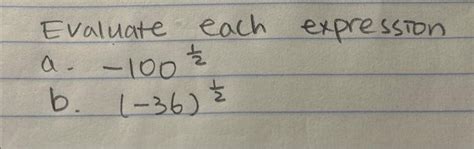 Evaluate each expression
a. -100^½
b. (-36)^½